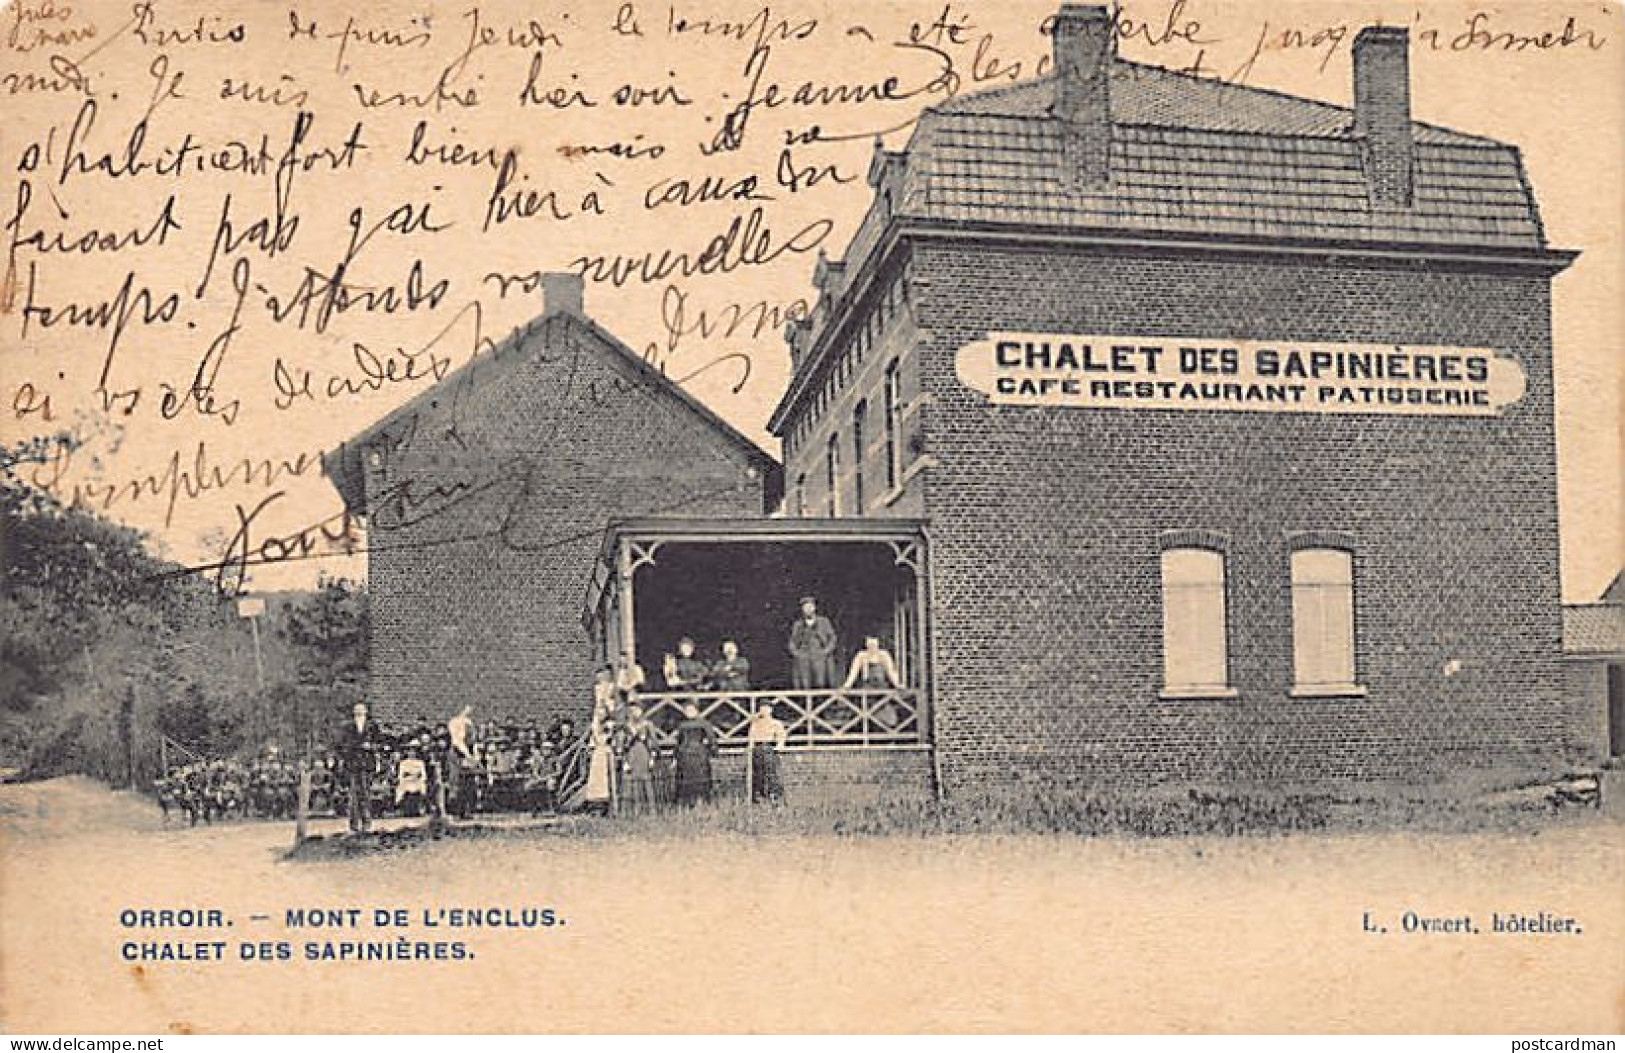 Jules
Partis depuis Jeudi le temps a été superbe jusqu'à Samedi
midi. Je suis rentré hier soir. Jeanne & les enfants
s'habituent fort bien mais il ne
faisait pas gai hier à cause du
temps. J'attends vos nouvelles
si vs êtes décidées pr Dimanche
Compliments Jules
CHALET DES SAPINIÈRES
CAFÉ RESTAURANT PATISSERIE
ORROIR. — MONT DE L'ENCLUS.
CHALET DES SAPINIÈRES.
L. Ovaert, hôtelier.
Delcampe.net
postcardman